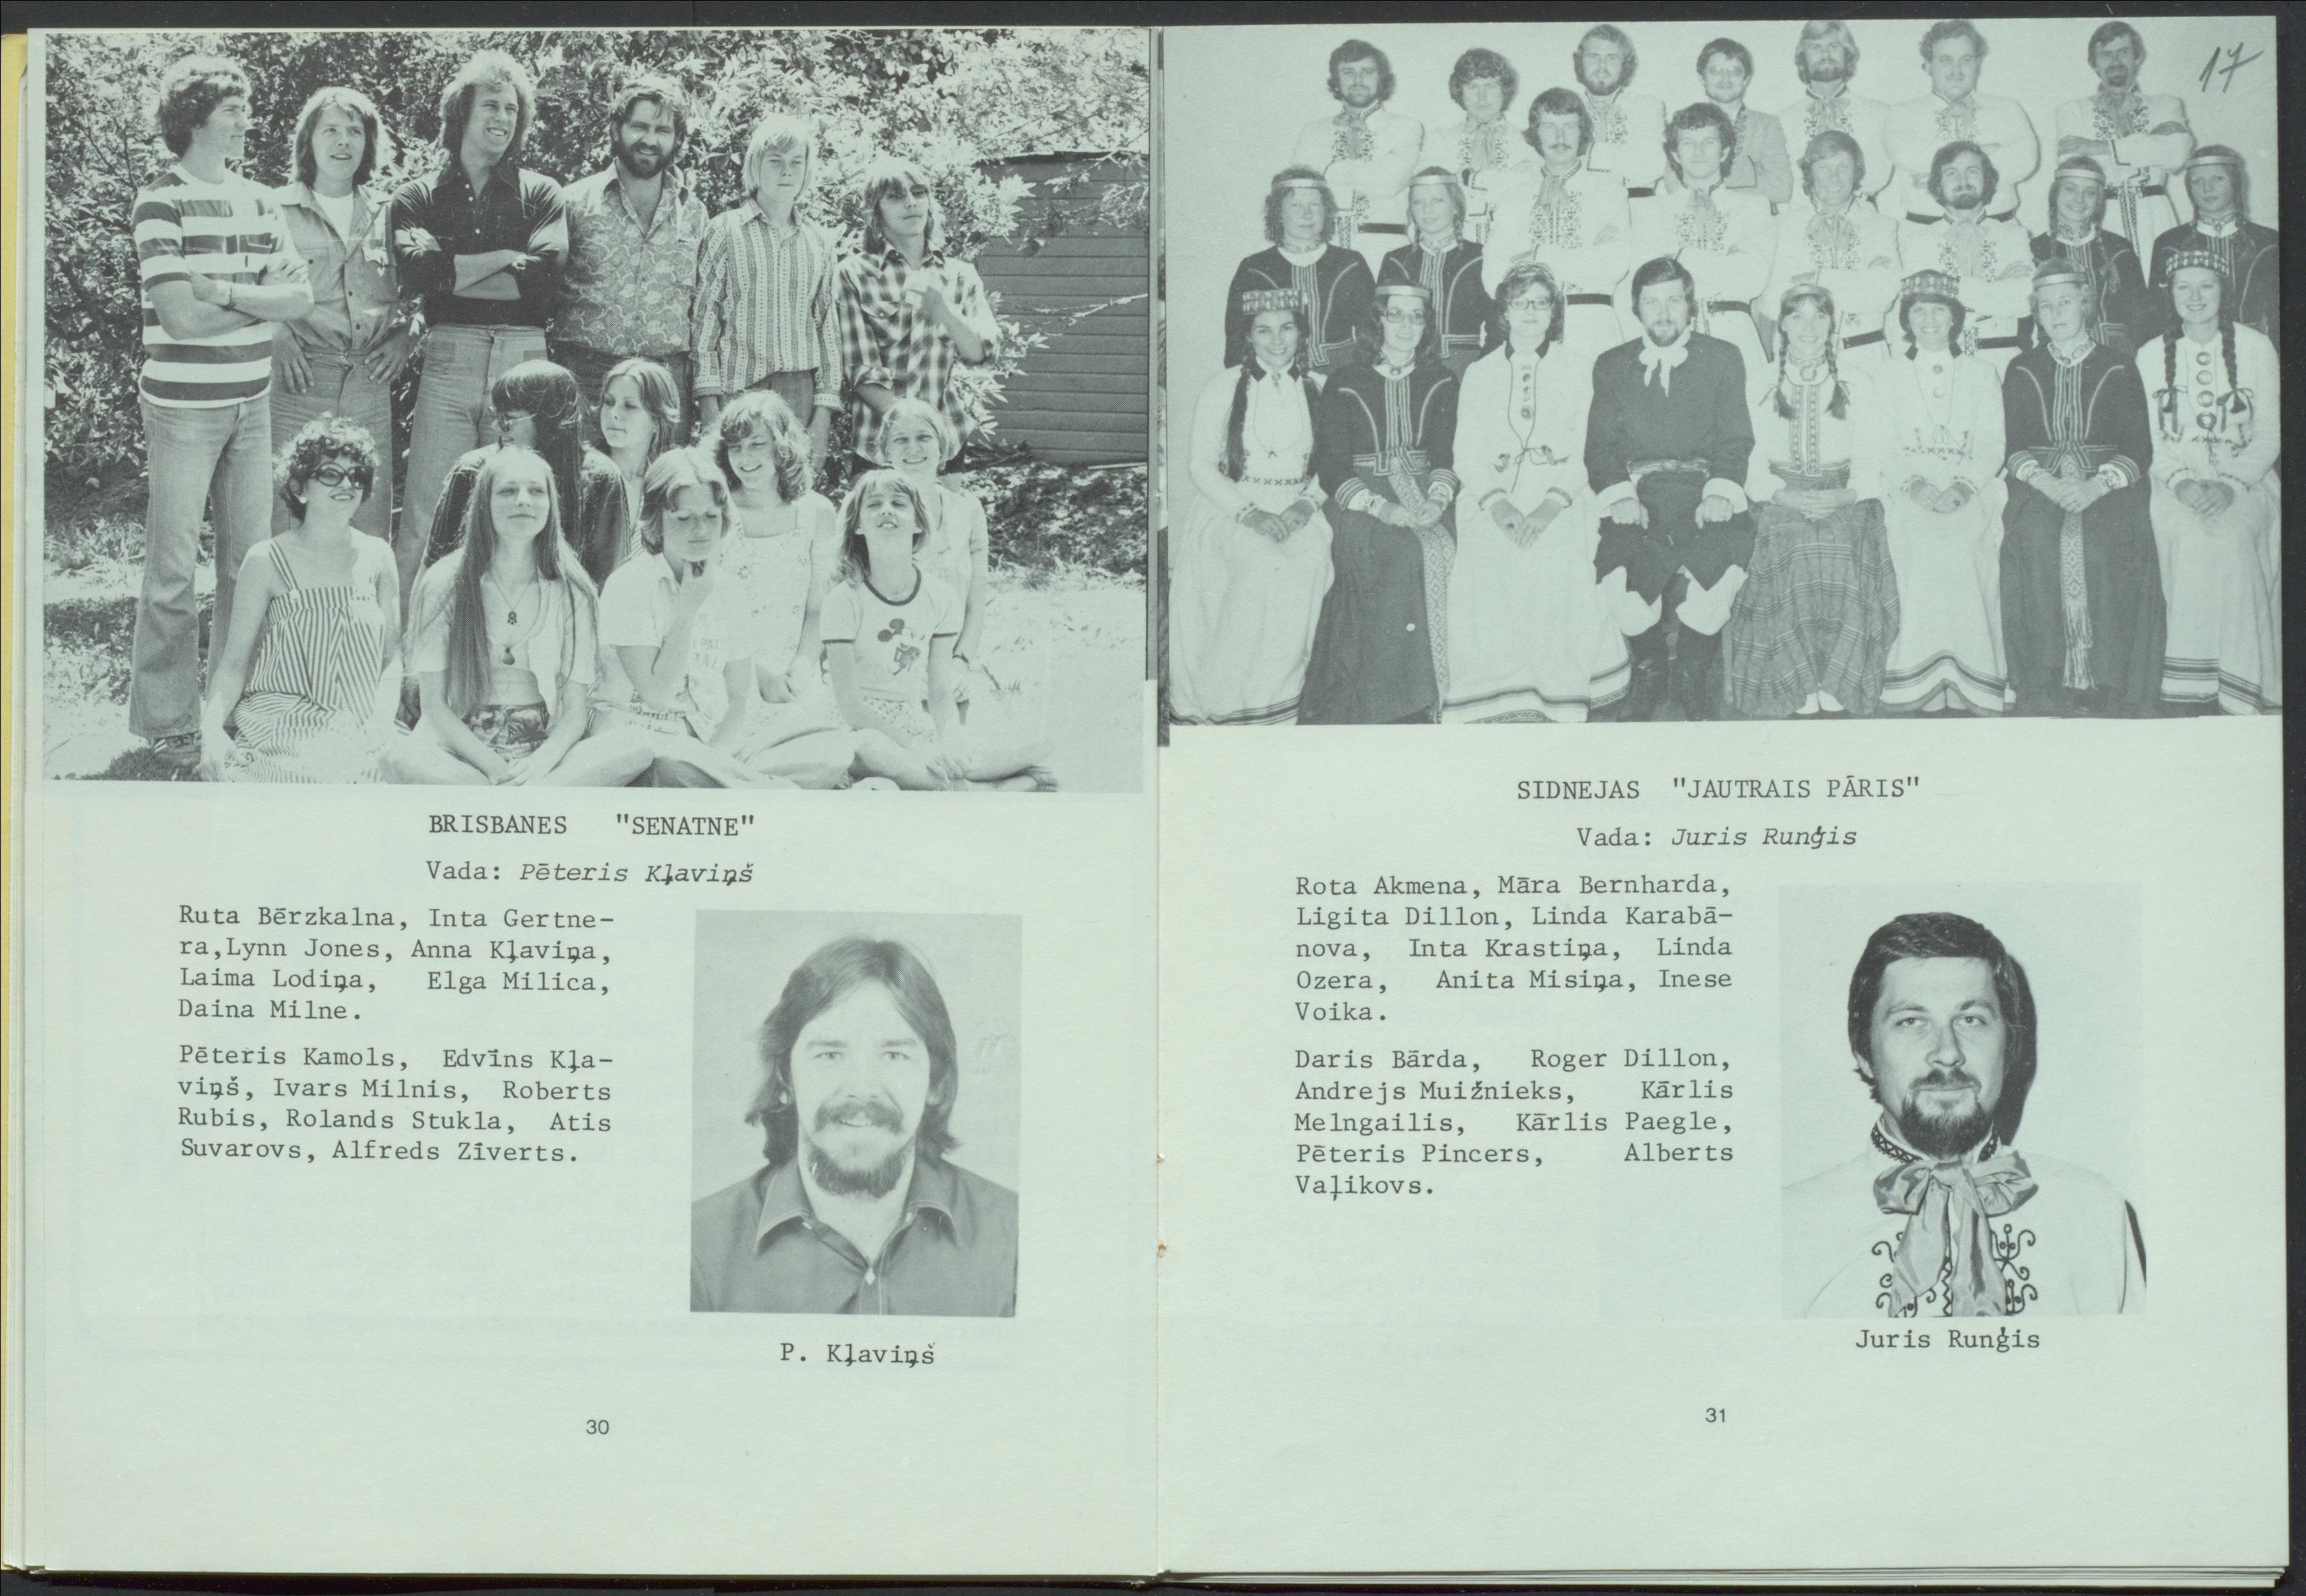 BRISBANES "SENATNE"
Vada: Pēteris Kļaviņš
Ruta Bērzkalna, Inta Gertne-
ra,Lynn Jones, Anna Kļaviņa,
Laima Lodiņa, Elga Milica,
Daina Milne.
Pēteris Kamols, Edvīns Kļa-
viņš, Ivars Milnis, Roberts
Rubis, Rolands Stukla, Atis
Suvarovs, Alfreds Zīverts.
P. Kļaviņš
30
17
SIDNEJAS "JAUTRAIS PĀRIS"
Vada: Juris Runģis
Rota Akmena, Māra Bernharda,
Ligita Dillon, Linda Karabā-
nova, Inta Krastiņa, Linda
Ozera, Anita Misiņa, Inese
Voika.
Daris Bārda, Roger Dillon,
Andrejs Muižnieks, Kārlis
Melngailis, Kārlis Paegle,
Pēteris Pincers, Alberts
Vaļikovs.
Juris Runģis
31